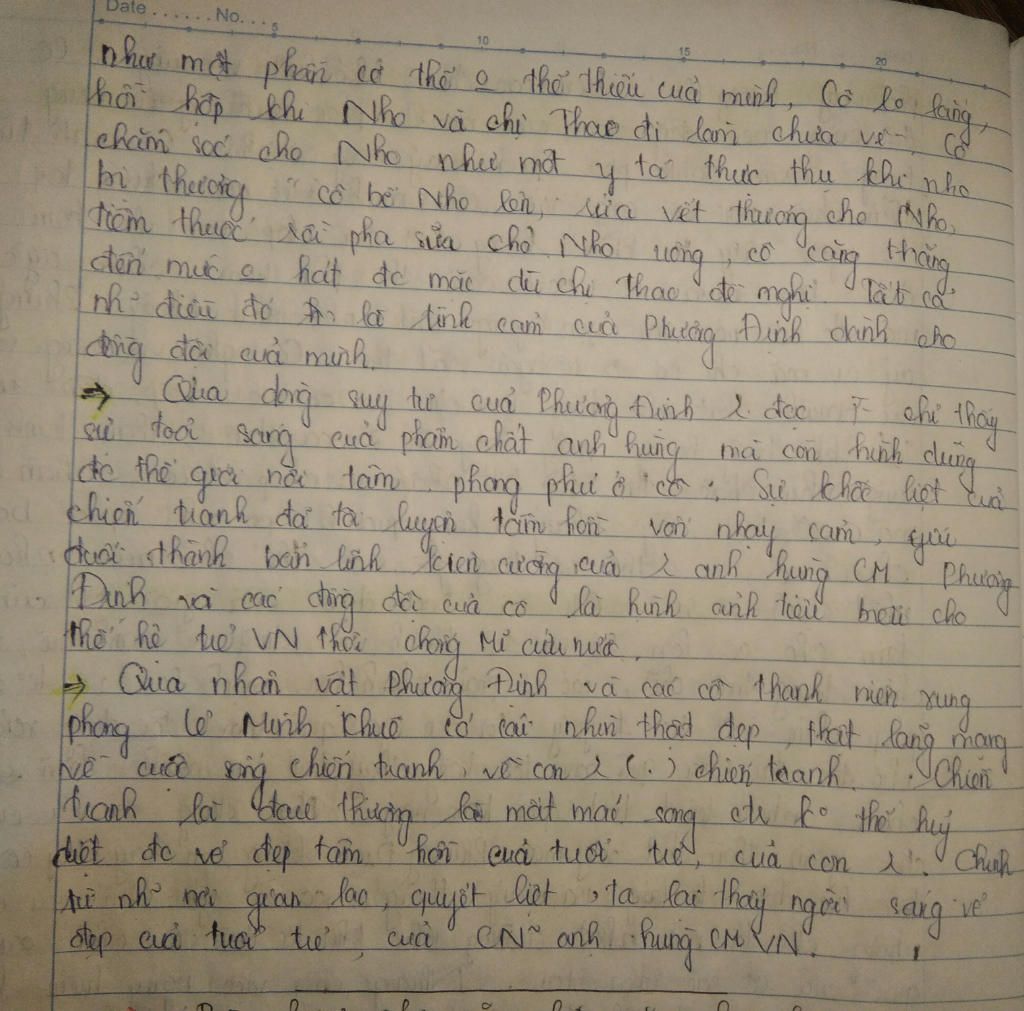 Date ...... No....
5 10 15 20
như một phần cơ thể o thể thiếu của mình, Cô lo lắng,
hồi hộp khi Nho và chị Thao đi làm chưa về, Cô
chăm sóc cho Nho như một y tá thực thụ khi nho
bị thương "cô bế Nho lên, rửa vết thương cho Nho,
tiêm thuốc rồi pha sữa cho Nho uống, cô căng thẳng
đến mức o hát đc mặc dù chị Thao đề nghị. Tất cả
nh~ điều đó là tình cảm của Phương Định dành cho
đồng đội của mình.
⇒ Qua dòng suy tư của Phương Định λ đọc chỉ thấy
sự toả sáng của phẩm chất anh hùng mà còn hình dung
đc thế giới nội tâm phong phú ở cô. Sự khốc liệt của
chiến tranh đã tôi luyện tâm hồn vốn nhạy cảm, yếu
đuối thành bản lĩnh kiên cường của λ anh hùng CM. Phương
Định và các đồng đội của cô là hình ảnh tiêu biểu cho
thế hệ trẻ VN thời chống Mĩ cứu nước.
⇒ Qua nhân vật Phương Định và các cô thanh niên xung
phong Lê Minh Khuê có cái nhìn thật đẹp, thật lãng mạng
về cuộc sống chiến tranh, về con λ (.) chiến tranh. Chiến
tranh là đau thương là mất mát song ko thể huỷ
diệt đc vẻ đẹp tâm hồn của tuổi trẻ, của con λ. Chính
từ nh~ nơi gian lao, quyết liệt, ta lại thấy ngời sáng vẻ
đẹp của tuổi trẻ, của CN~ anh hùng CM VN.